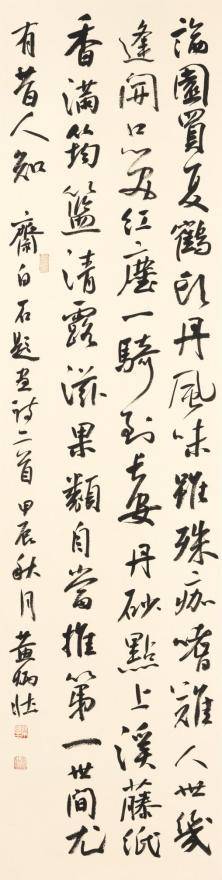 論園買夏鶴頭丹風味雖殊痂嗜難人世幾
逢開口笑紅塵一騎到長安丹砂點上溪藤紙
香滿筠籃清露滋果類自當推第一世間尤
有昔人知 齋白石題畫詩二首 甲辰秋月 黃炳